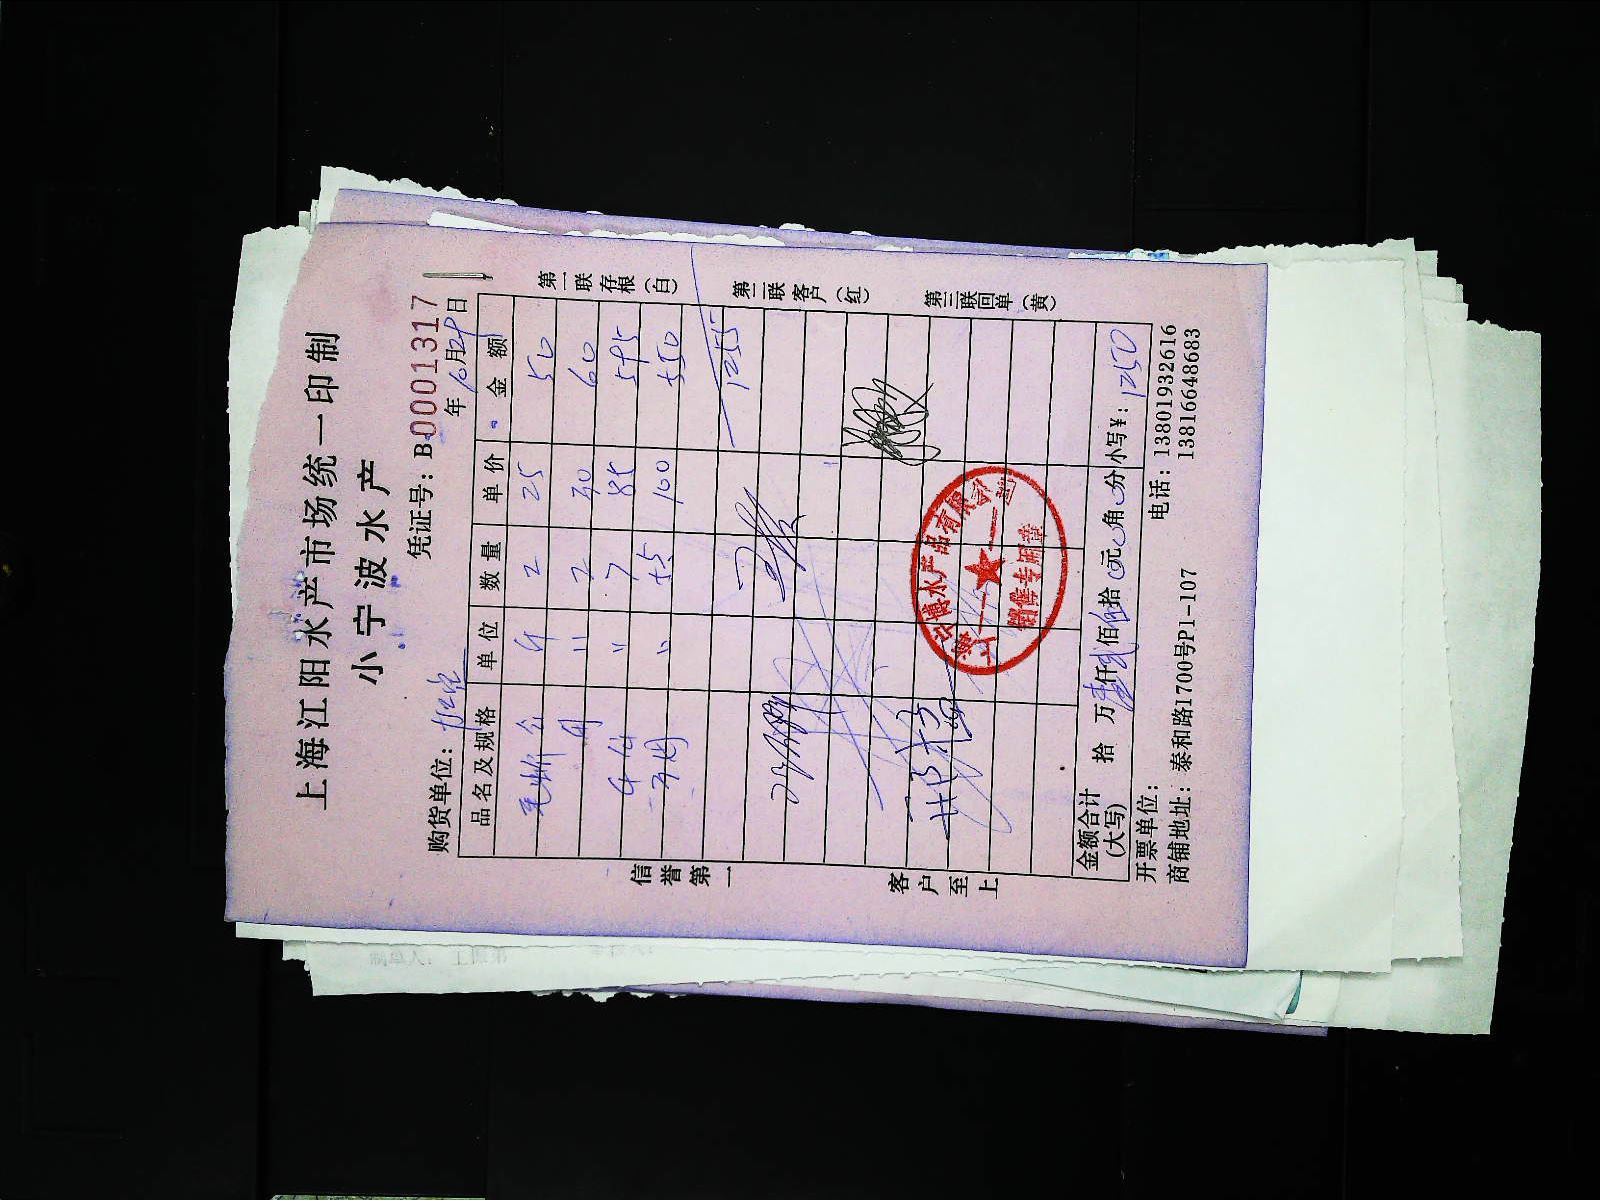 上海江阳水产市场统一印制
小宁波水产
凭证号：B 0001317
购货单位： 年10月29日
品名及规格 单位 数量 单价 金额
斤 2 25 50
〃 2 30 60
〃 7 85 595
〃 5.5 100 550
1255
金额合计(大写) 拾 万 仟 佰 拾 元 角 分 小写¥：1250
开票单位： 电话：13801932616
商铺地址：泰和路1700号P1-107 13816648683
信誉第一
客户至上
第一联存根(白)
第二联客户(红)
第三联回单(黄)
水产品有限
销售专用章